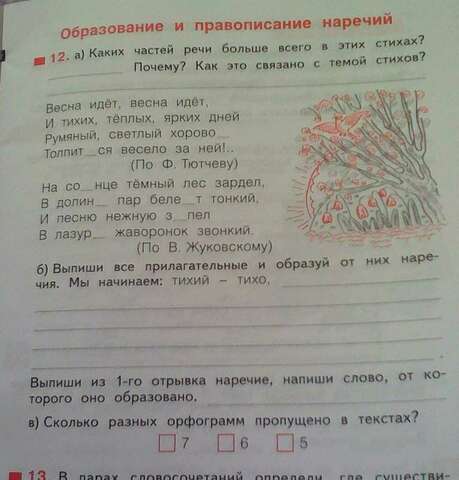 Образование и правописание наречий
12. а) Каких частей речи больше всего в этих стихах?
Почему? Как это связано с темой стихов?
Весна идёт, весна идёт,
И тихих, тёплых, ярких дней
Румяный, светлый хорово_
Толпит_ся весело за ней!..
(По Ф. Тютчеву)
На со_нце тёмный лес зардел,
В долин_ пар беле_т тонкий,
И песню нежную з_пел
В лазур_ жаворонок звонкий.
(По В. Жуковскому)
б) Выпиши все прилагательные и образуй от них наре-
чия. Мы начинаем: тихий – тихо,
Выпиши из 1-го отрывка наречие, напиши слово, от ко-
торого оно образовано.
в) Сколько разных орфограмм пропущено в текстах?
7 6 5
13. В парах словосочетаний определи, где существи-